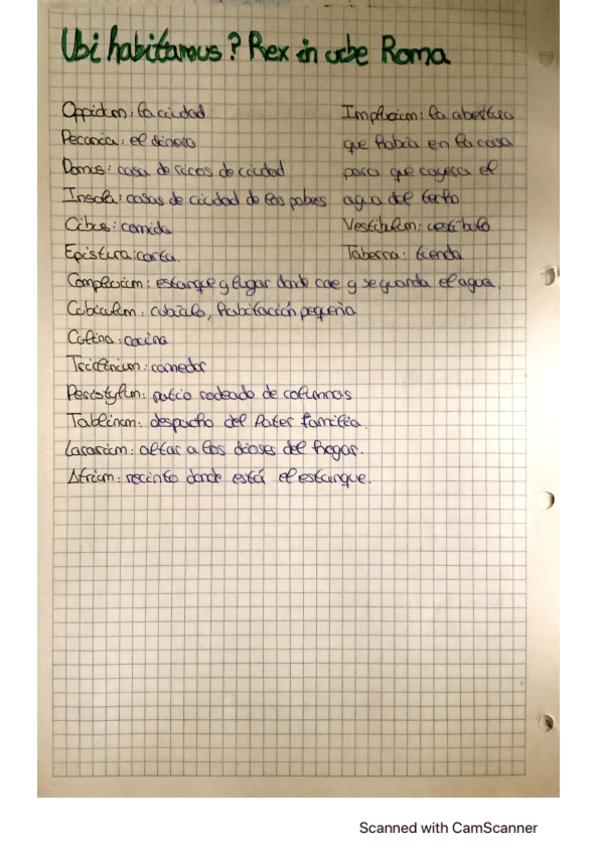 Ubi habitamus? Rex in urbe Roma
Oppidum: la ciudad
Pecunia: el dinero
Domus: casa de ricos de ciudad
Insula: casas de ciudad de los pobres
Cibus: comida
Epistura: carta.
Impluvium: la abertura
que había en la casa
para que cayera el
agua del techo
Vestibulum: vestíbulo
Taberna: tienda
Compluvium: estanque y lugar donde cae y se guarda el agua.
Cubiculum: cubículo, habitación pequeña
Culina: cocina
Triclinium: comedor
Peristylum: patio rodeado de columnas
Tablinum: despacho del Pater familia.
Lararium: altar a los dioses del hogar.
Atrium: recinto donde está el estanque.
Scanned with CamScanner